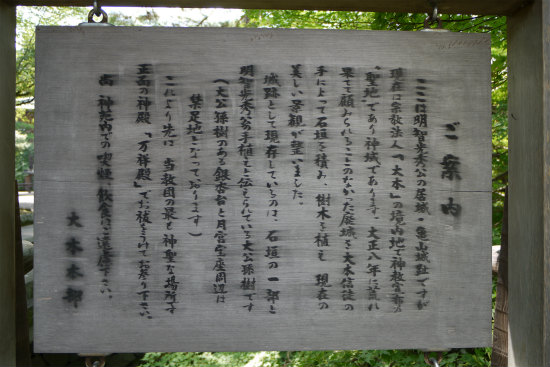 ご案内
ここは明智光秀公の居城、亀山城趾ですが
現在は宗教法人「大本」の境内地で神教宣布の
〝聖地〟であり神域であります。大正八年に荒れ
果てて顧みられることのなかった廃城を大本信徒の
手によって石垣を積み、樹木を植え 現在の
美しい景観が整いました。
城跡として現存しているのは、石垣の一部と
明智光秀公手植えと伝えられている大公孫樹です
(大公孫樹のある銀杏台と月宮宝座周辺は
禁足地となっております)
これより先は 当教団の最も神聖な場所です
正面の神殿「万祥殿」でお祓をうけてお参り下さい。
尚 神苑内での喫煙・飲食はご遠慮下さい。
大本本部